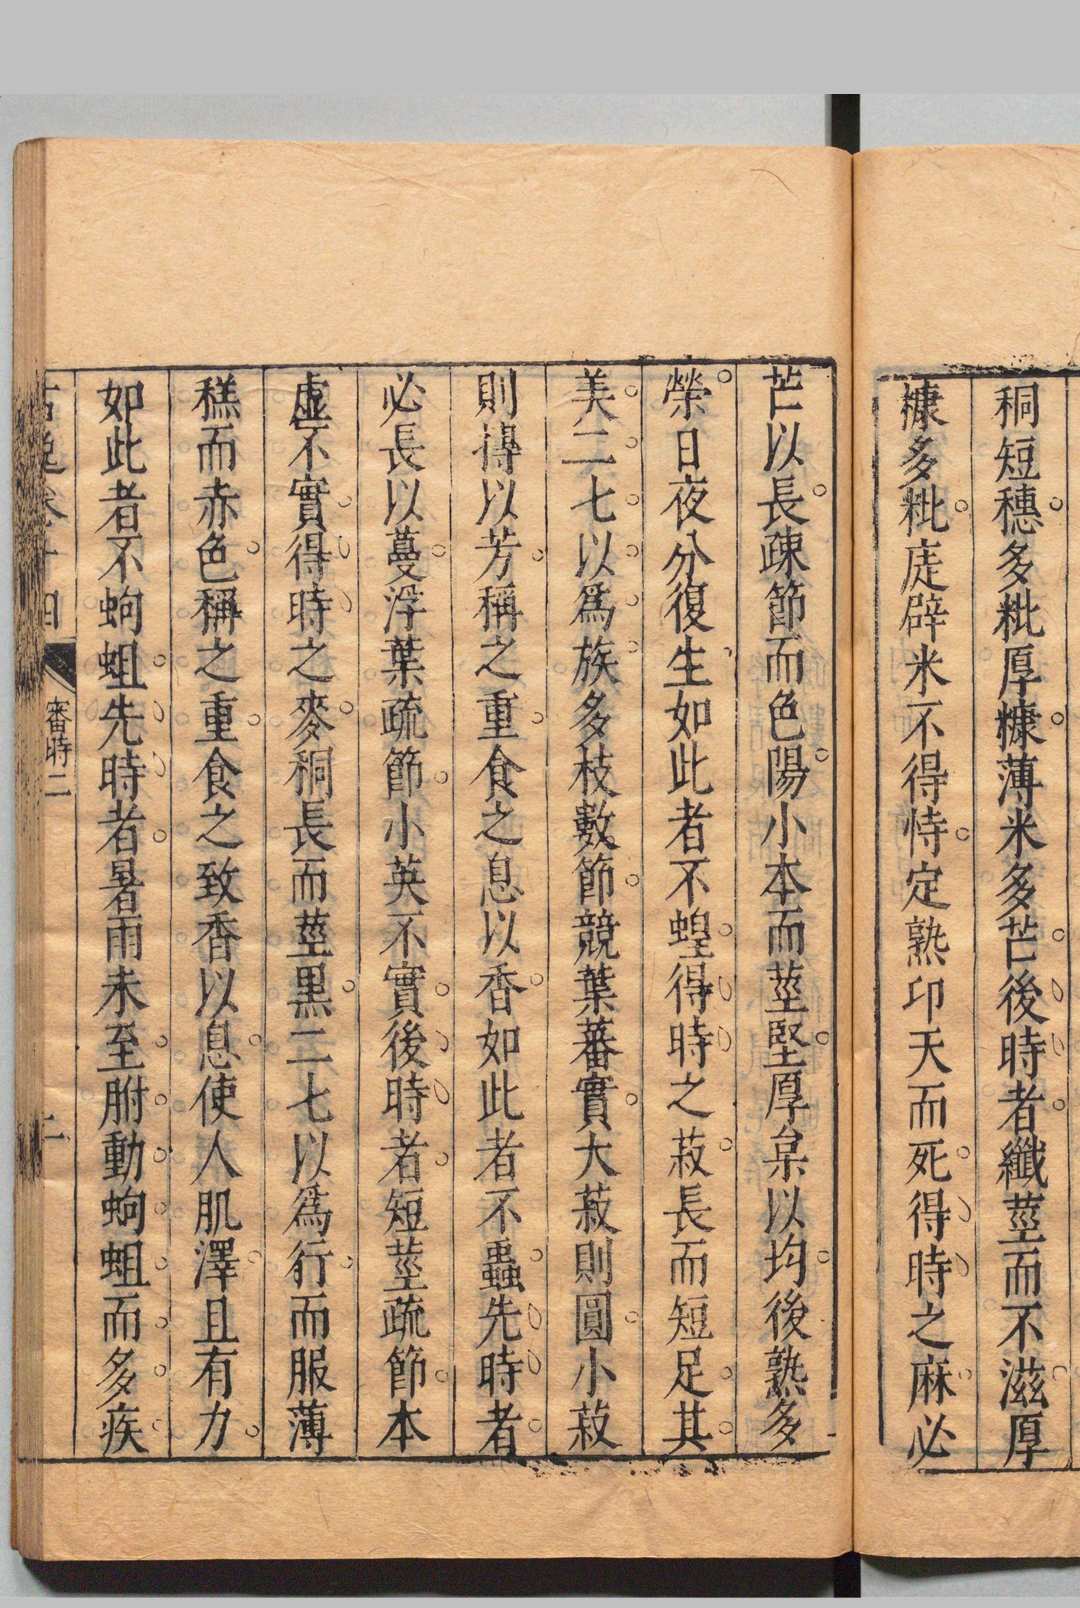 秱短穗多粃厚糠薄米多芒後時者纖莖而不滋厚
糠多粃庢辟米不得恃定熟卬天而死得時之麻必
芒以長疎節而色陽小本而莖堅厚枲以均後熟多
榮日夜分復生如此者不蝗得時之菽長而短足其
美二七以爲族多枝數節競葉蕃實大菽則圓小菽
則摶以芳稱之重食之息以香如此者不蟲先時者
必長以蔓浮葉疏節小莢不實後時者短莖疏節本
虛不實得時之麥秱長而莖黑二七以爲行而服薄
糕而赤色稱之重食之致香以息使人肌澤且有力
如此者不蚼蛆先時者暑雨未至胕動蚼蛆而多疾
古逸卷十四
審時二
二